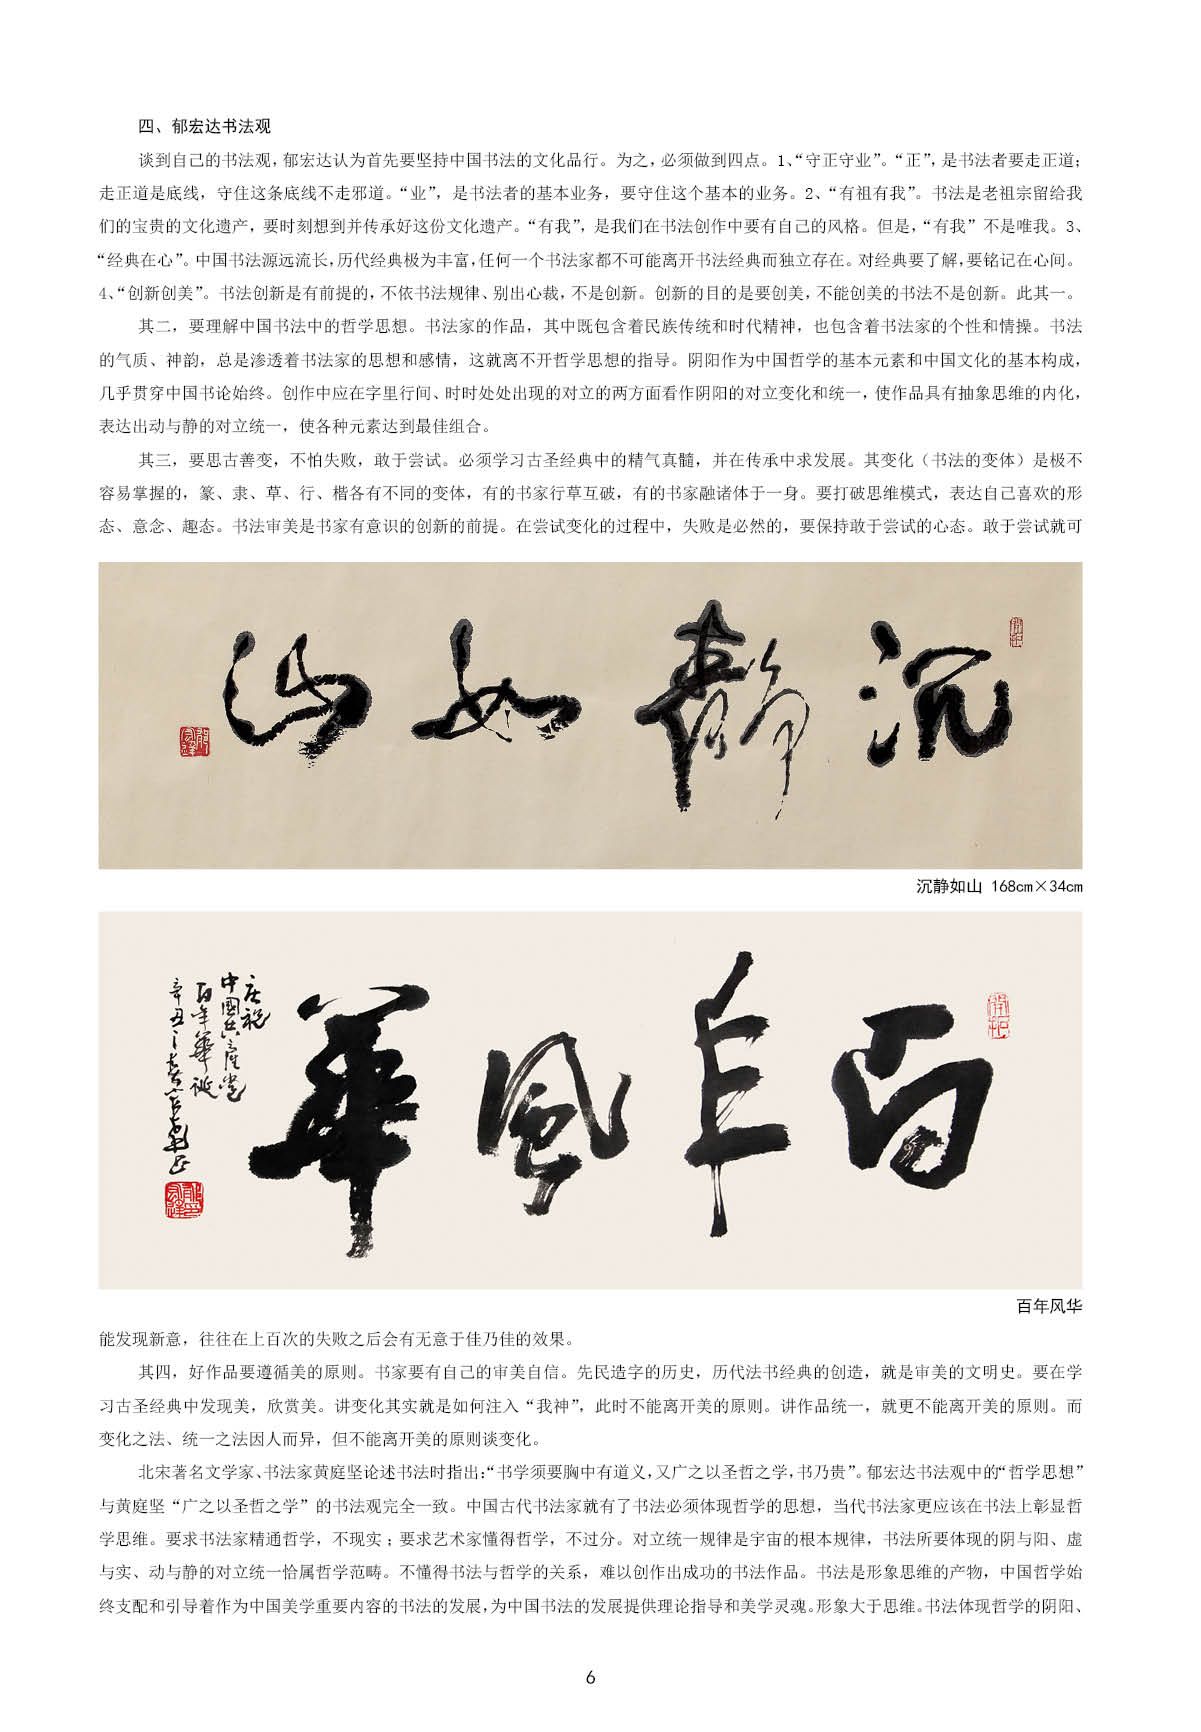 四、郁宏达书法观
谈到自己的书法观，郁宏达认为首先要坚持中国书法的文化品行。为之，必须做到四点。1、“守正守业”。“正”，是书法者要走正道；
走正道是底线，守住这条底线不走邪道。“业”，是书法者的基本业务，要守住这个基本的业务。2、“有祖有我”。书法是老祖宗留给我
们的宝贵的文化遗产，要时刻想到并传承好这份文化遗产。“有我”，是我们在书法创作中要有自己的风格。但是，“有我”不是唯我。3、
“经典在心”。中国书法源远流长，历代经典极为丰富，任何一个书法家都不可能离开书法经典而独立存在。对经典要了解，要铭记在心间。
4、“创新创美”。书法创新是有前提的，不依书法规律、别出心裁，不是创新。创新的目的是要创美，不能创美的书法不是创新。此其一。
其二，要理解中国书法中的哲学思想。书法家的作品，其中既包含着民族传统和时代精神，也包含着书法家的个性和情操。书法
的气质、神韵，总是渗透着书法家的思想和感情，这就离不开哲学思想的指导。阴阳作为中国哲学的基本元素和中国文化的基本构成，
几乎贯穿中国书论始终。创作中应在字里行间、时时处处出现的对立的两方面看作阴阳的对立变化和统一，使作品具有抽象思维的内化，
表达出动与静的对立统一，使各种元素达到最佳组合。
其三，要思古善变，不怕失败，敢于尝试。必须学习古圣经典中的精气真髓，并在传承中求发展。其变化（书法的变体）是极不
容易掌握的，篆、隶、草、行、楷各有不同的变体，有的书家行草互破，有的书家融诸体于一身。要打破思维模式，表达自己喜欢的形
态、意念、趣态。书法审美是书家有意识的创新的前提。在尝试变化的过程中，失败是必然的，要保持敢于尝试的心态。敢于尝试就可
沉静如山
沉静如山 168cm×34cm
百年风華
庆祝
中國共產党
百年華诞
辛丑之春宏达书
百年风华
能发现新意，往往在上百次的失败之后会有无意于佳乃佳的效果。
其四，好作品要遵循美的原则。书家要有自己的审美自信。先民造字的历史，历代法书经典的创造，就是审美的文明史。要在学
习古圣经典中发现美，欣赏美。讲变化其实就是如何注入“我神”，此时不能离开美的原则。讲作品统一，就更不能离开美的原则。而
变化之法、统一之法因人而异，但不能离开美的原则谈变化。
北宋著名文学家、书法家黄庭坚论述书法时指出：“书学须要胸中有道义，又广之以圣哲之学，书乃贵”。郁宏达书法观中的“哲学思想”
与黄庭坚“广之以圣哲之学”的书法观完全一致。中国古代书法家就有了书法必须体现哲学的思想，当代书法家更应该在书法上彰显哲
学思维。要求书法家精通哲学，不现实；要求艺术家懂得哲学，不过分。对立统一规律是宇宙的根本规律，书法所要体现的阴与阳、虚
与实、动与静的对立统一恰属哲学范畴。不懂得书法与哲学的关系，难以创作出成功的书法作品。书法是形象思维的产物，中国哲学始
终支配和引导着作为中国美学重要内容的书法的发展，为中国书法的发展提供理论指导和美学灵魂。形象大于思维。书法体现哲学的阴阳、
6